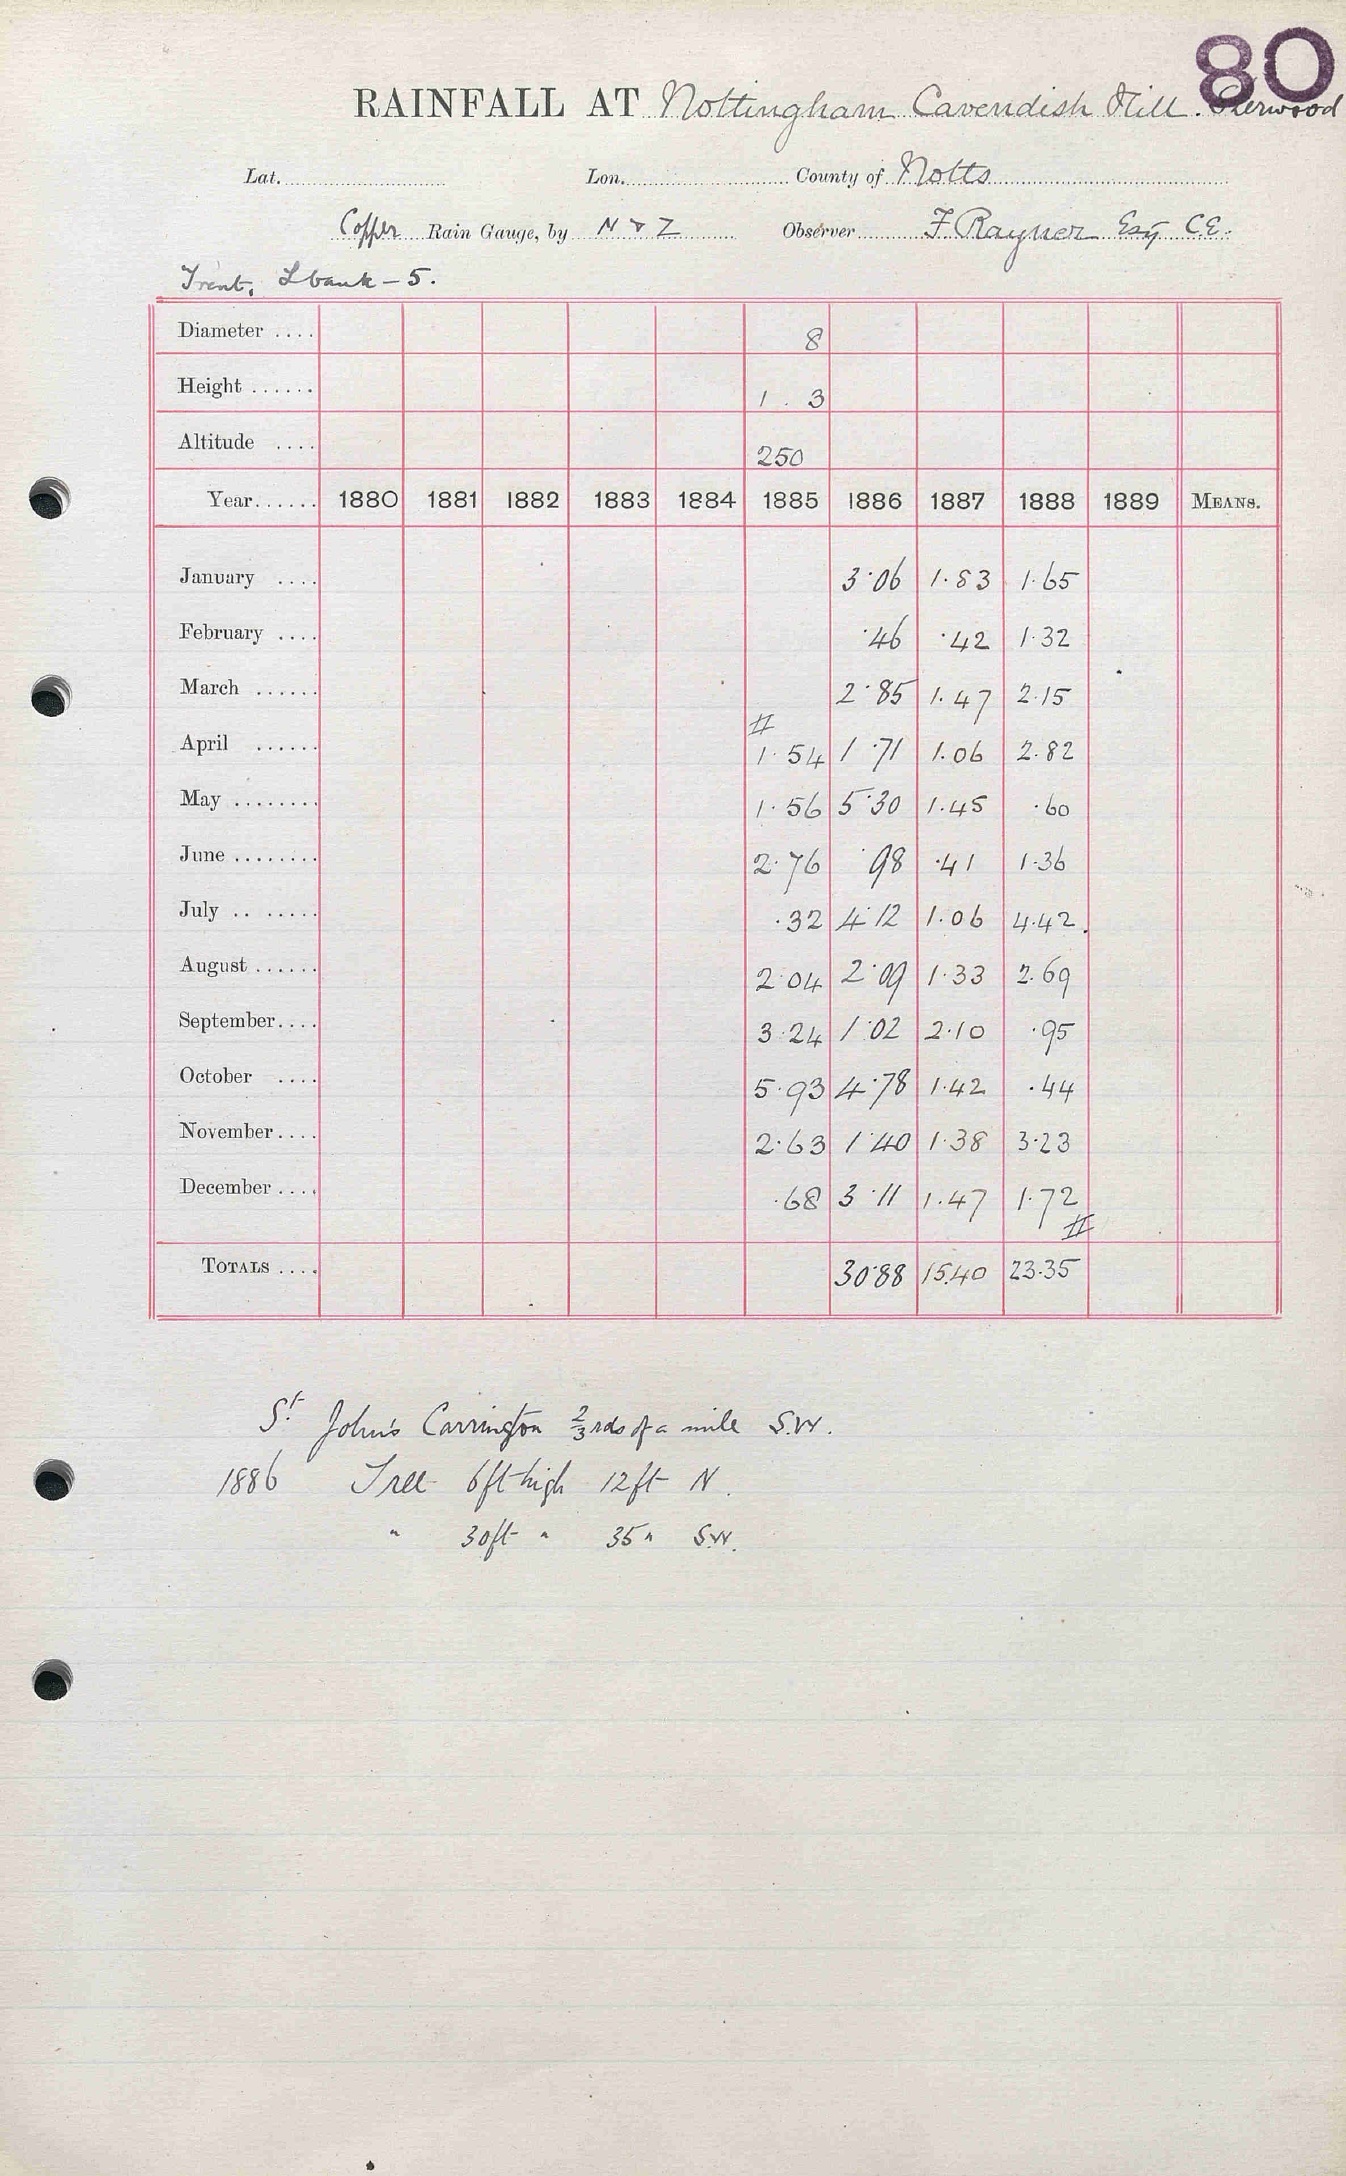 80
RAINFALL AT Nottingham Cavendish Hill. Sherwood
Lat. Lon. County of Notts
Copper Rain Gauge, by N & Z Observer F Rayner Esq C.E.
Trent, L bank – 5.
Diameter .... 8
Height ...... 1 . 3
Altitude .... 250
Year...... 1880 1881 1882 1883 1884 1885 1886 1887 1888 1889 MEANS.
January .... 3·06 1·83 1·65
February .... ·46 ·42 1·32
March ...... 2·85 1·47 2·15
#
April ...... 1·54 1·71 1·06 2·82
May ........ 1·56 5·30 1·45 ·60
June ........ 2·76 ·98 ·41 1·36
July .. ..... ·32 4·12 1·06 4·42.
August ...... 2·04 2·09 1·33 2·69
September.... 3·24 1·02 2·10 ·95
October .... 5·93 4·78 1·42 ·44
November.... 2·63 1·40 1·38 3·23
December .... ·68 3·11 1·47 1·72
#
TOTALS .... 30·88 15·40 23·35
St. John's Carrington 2/3rds of a mile S.W.
1886 Tree 6ft high 12ft N.
" 30ft " 35 " S.W.